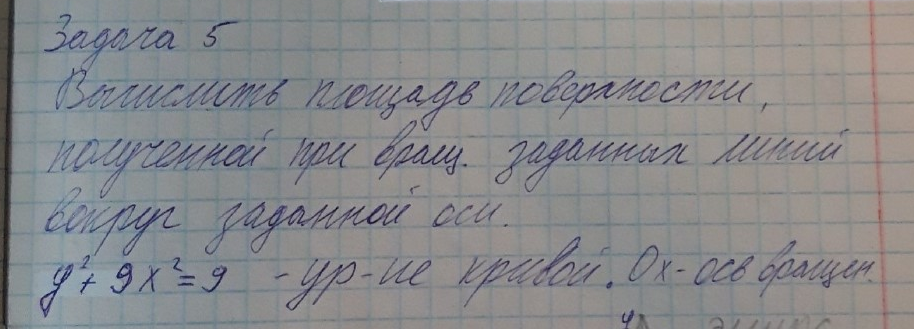 Задача 5
Вычислить площадь поверхности,
полученной при вращ. заданных линий
вокруг заданной оси.
y²+9x²=9 -ур-ие кривой. Ox-ось вращен.